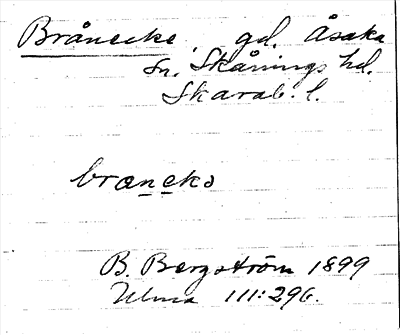 Brånecke, gd. Åsaka
sn, Skånings hd.
Skarab. l.
branecka
B. Bergström 1899
Ulma 111:296.